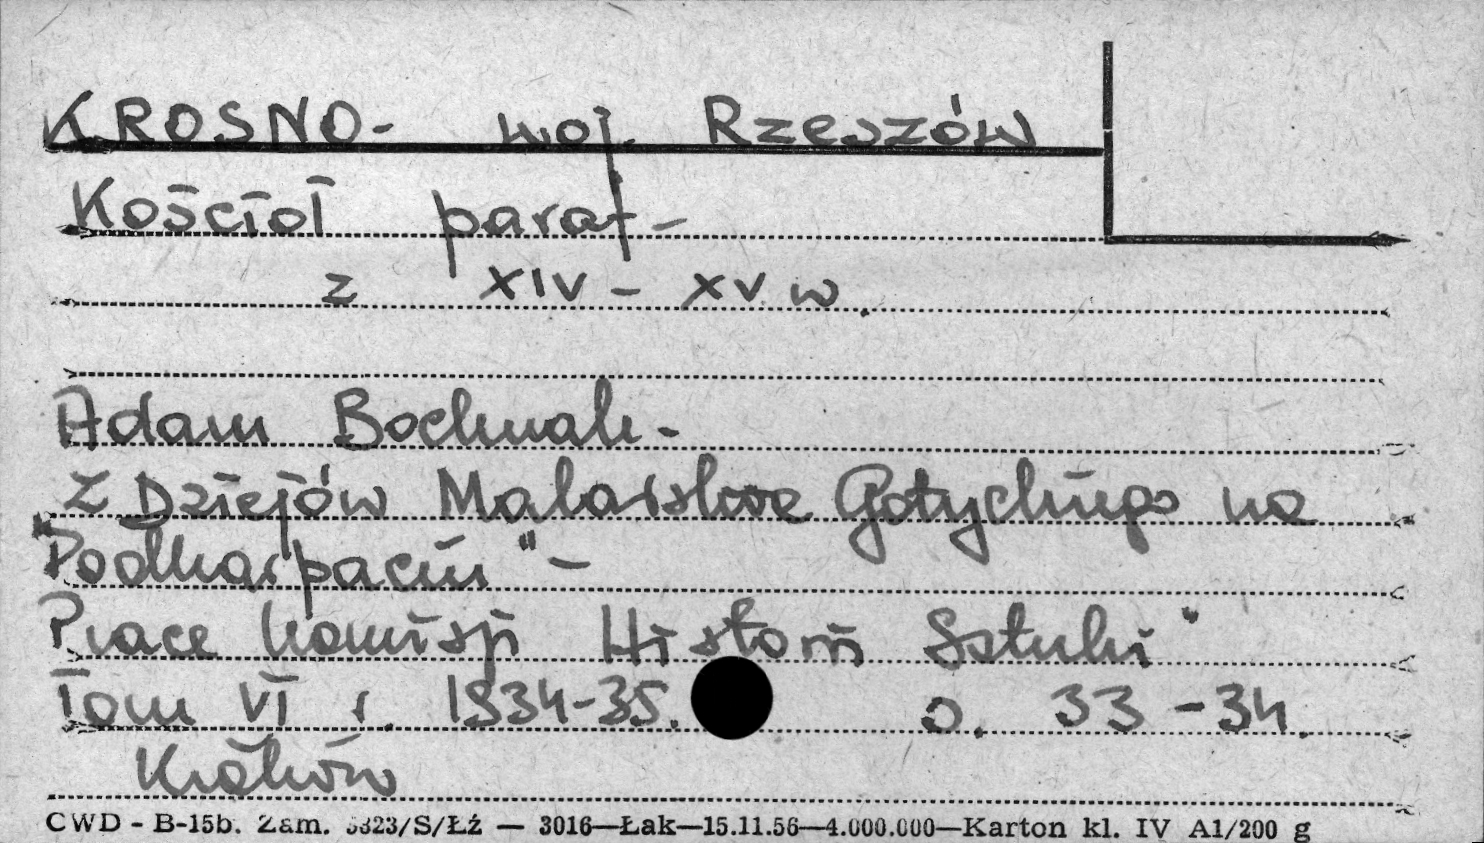 KROSNO - woj. Rzeszów
Kościół paraf -
z XIV - XV w.
Adam Bochnak -
Z Dziejów Malarstwa Gotyckiego na
Podkarpaciu" -
Prace Komisji Historii Sztuki"
Tom VI r. 1934-35. s. 33 - 34.
Kraków
CWD - B-15b. Zam. 5323/S/Łź — 3016—Łak—15.11.56—4.000.000—Karton kl. IV A1/200 g